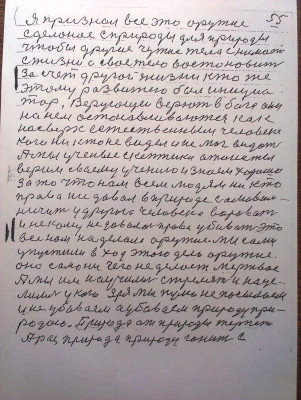 55
Я признал все это оружие
сделоное с природы для природы
чтобы другие чужие тела снимать
с жизни а своего востоновит
за счет другой жизни кто же
этому развитего был инициа
тор, Верующии верют в бога они
на нем остонавливаются как
на сверх естественным человеке
кого ни кто не видел и не мог видат
А мы ученые скептики атеисты
верим своему учению и знаем хорошо
за то что нам всем людям ни кто
права не довал в природе самоволь
ничит у другого человека воровать
и некому не довал права убивать это
все нам наделало оружие. мы сами
упустили в ход этого дело оружие.
оно само ни чего не делает мертвое
А мы им научились стрелят и наце
лили у кого зря мы пулю не посылаем
и не убиваем а убиваем природу при-
родою. Природа от природы терпет
А раз природа природу гонит с